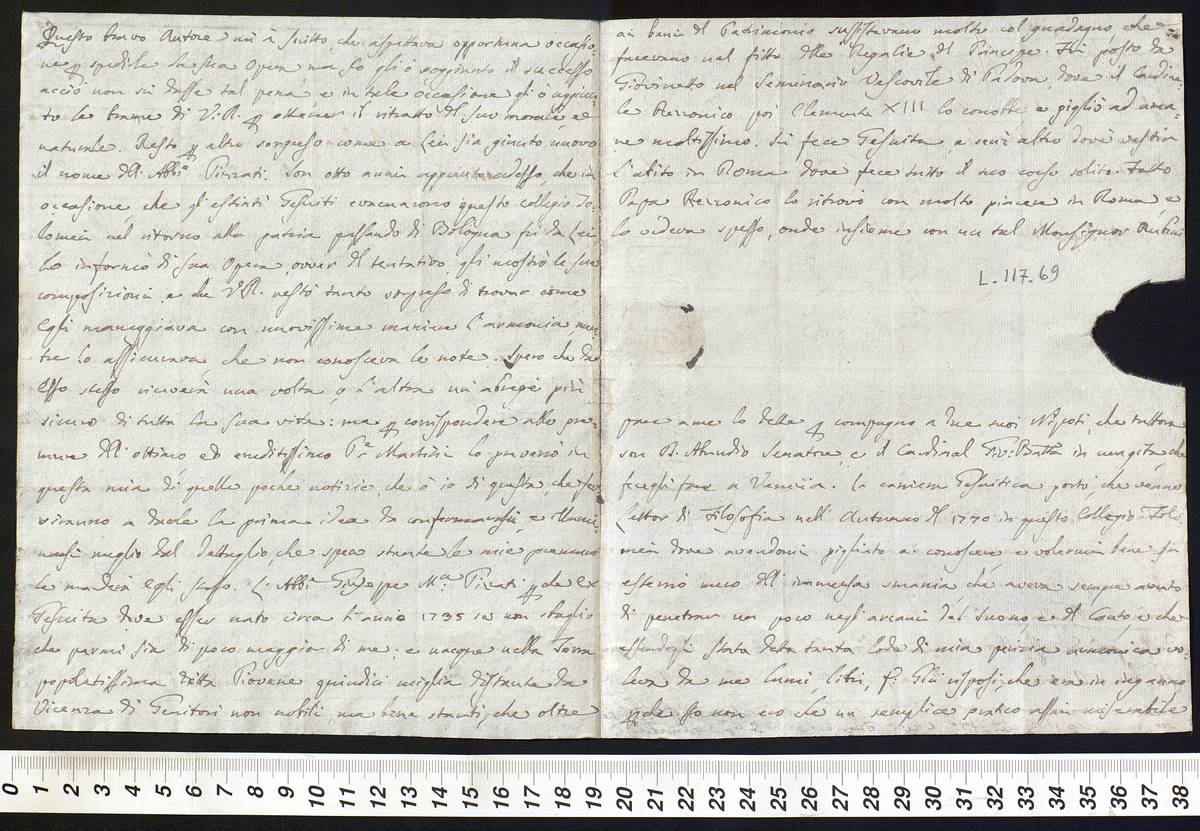 Questo bravo Autore mi à scritto, che aspettava opportuna occasio-
ne spedirle la sua Opera ma Io gli ò soggionto il successo
acciò non si dasse tal pena e in tale occasione gli ò
to le brame di V: R. ottener il ritratto del suo morale, e
naturale. Resto altro sorpreso come a Lei sia giunto nuovo
il nome dell' Abb.e Pizzati. Son otto anni appunto adesso, che in
occasione, che gl'estinti Gesuiti evacuarono questo collegio To-
lomei nel ritorno alla patria passando di Bologna fù da Lei
Lo informò di sua Opera, ovver del tentativo, gli mostrò le sue
composizioni, e che V. R. restò tanto sorpreso di trovar come
Egli maneggiava con nuovissime maniere l'armonia, men-
tre lo assicurava, che non conosceva le note. Spero che da
Esso stesso riceverà una volta, o l'altra un' abregè
simo di tutta la sua vita: ma corrispondere alle pre-
mure dell' ottimo ed eruditissimo P.e Martini lo preverrò in
questa mia di quelle poche notizie, che ò io di questa, che ser-
viranno a darle la prima idea da confermarsi, e
narsi meglio dal dettaglio, che spero stante le mie premure
le manderà Egli stesso. L'Abb.e Giuseppe M.a Pizzati ex
Gesuita deve esser nato circa l'anno 1735 se non sbaglio
che parmi sia di poco maggior di me: e nacque nella Terra
popolatissima detta Piovene quindici miglia distante da
Vicenza di Genitori non nobili, ma bene stanti, che oltre
ai beni di Patrimonio sussistevano molto col guadagno, che
facevano nel fitto delle Regalie del Principe. Fù posto da
Giovinetto nel Seminario Vescovile di Padova, dove il Cardina-
le Rezzonico poi Clemente XIII lo conobbe, e pigliò ad ama-
re moltissimo. Si fece Gesuita, e senz' altro dovè vestir
l'abito in Roma dove fece tutto il suo corso solito. Fatto
Papa Rezzonico lo ritrovò con molto piacere in Roma, e
lo vedeva spesso, onde insieme con un tal Monsignor Rubini
L. 117. 69
pare a me lo dette compagno a due suoi Nipoti, che tuttora
son D. Abondio Senatore, e il Cardinal Gio: Batta in
fecegli fare a Venezia. La carriera Gesuitica portò, che venne
Lettor di Filosofia nell' Autunno del 1770 in questo Collegio Tolo-
mei dove avendomi pigliato a conoscere e volermi bene si
esternò meco dell' immensa smania, che aveva sempre avuto
di penetrar un poco negl' arcani del Suono, e del Canto, e che
essendogli stata detta tanta lode di mia perizia armonica vo-
leva da me lumi, libri, Gli risposi, che era in inganno
Io non ero che un semplice pratico assai miserabile